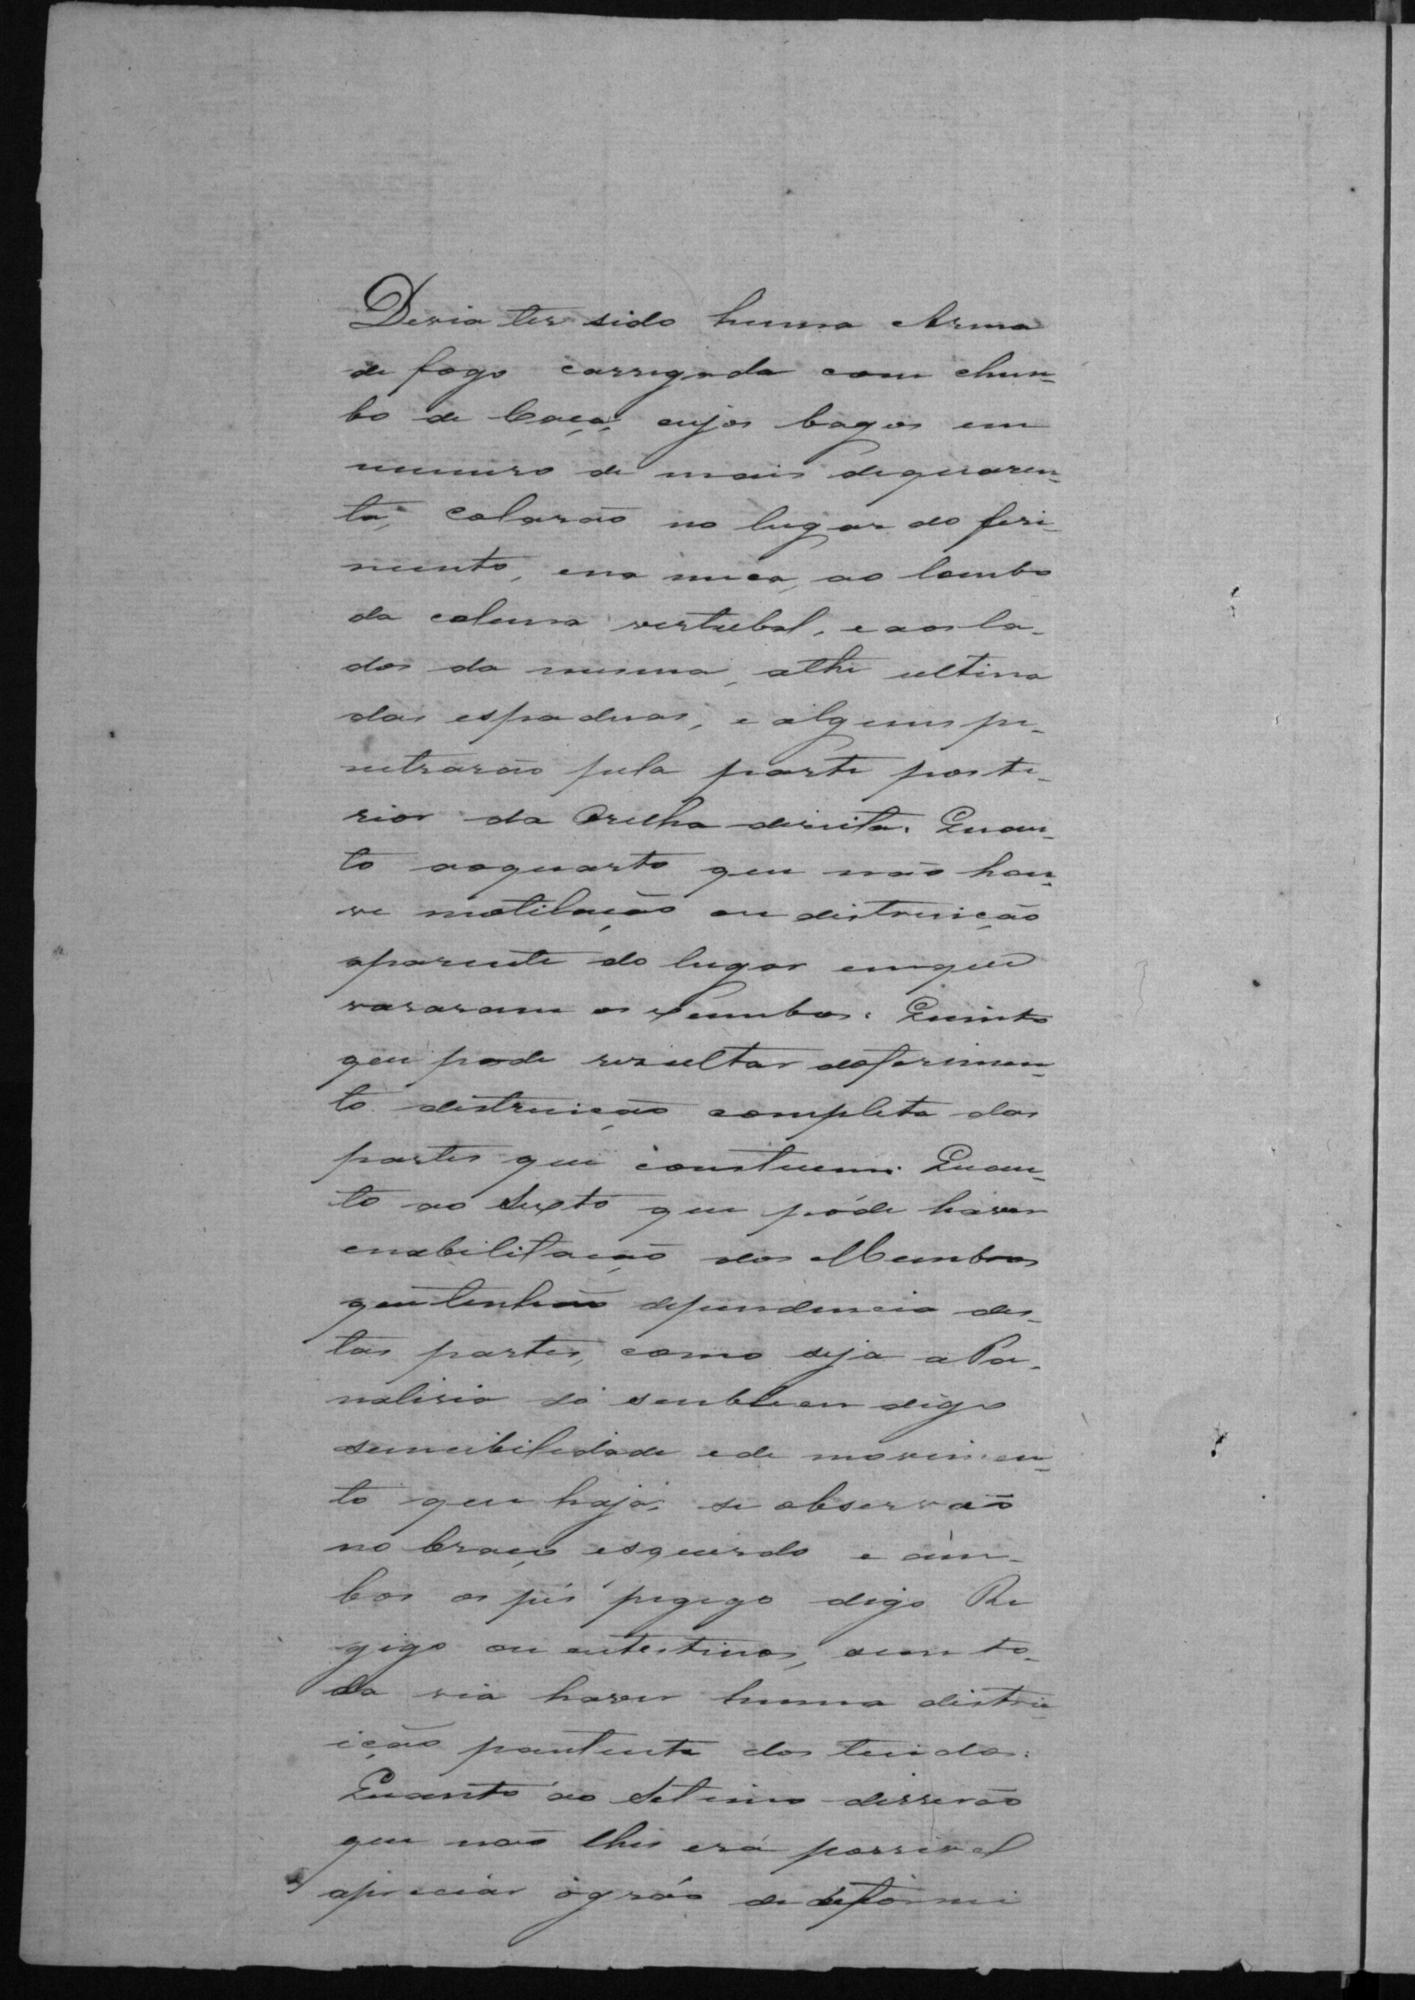 Devia ter sido huma Arma
de fogo carregada com chum-
bo de Caça, cujos bagos em
numero de mais dequaren-
ta, calarão no lugar do feri-
mento, ena nuca, ao lombo
da coluna vertrebal, e aos la-
dos da mesma, athe ultima
das espaduas, e alguns pe-
netrarão pela parte poste-
rior da Orelha direita. Quan-
to aoquarto que não hou-
ve motilação ou distruição
aparente do lugar emque
vararam os xumbos: Quinto
que pode rezultar doferimen-
to distruição completa das
partes que constituem: Quan-
to ao Sexto que póde haver
enabilitação dos Membros
que tenhão dependencia des-
tas partes, como seja a Pa-
ralisia di digo
sencibilidade e de movimen-
to que hajá se observão
no braço esquerdo e am-
bos os pés pegigo digo Re
gigo ou entestinos, sem to-
da via haver huma distru-
ição pantente dos tecidos:
Quanto ao Setimo disserão
que não lhes erá possivel
apreciár ográo de defórmi